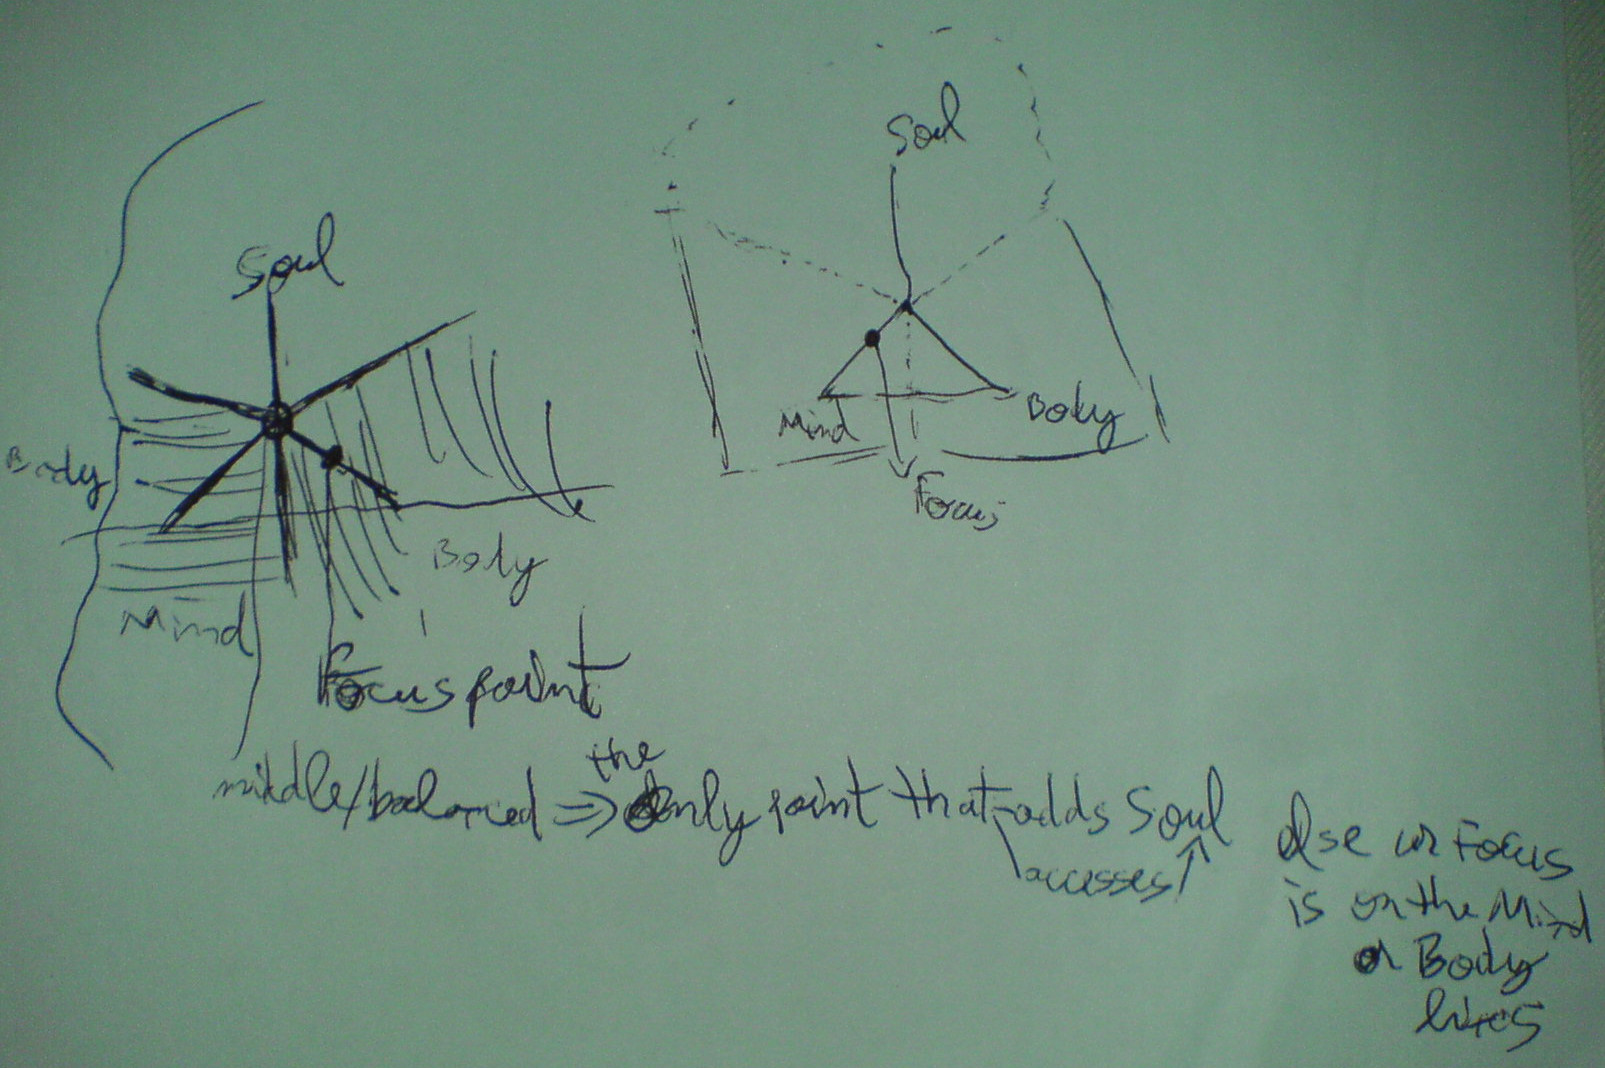 Soul
Body
Body
Mind
Focus point
Soul
Mind
Body
Focus
middle/balanced => the Only point that adds Soul
accesses
else ur Focus
is on the Mind
or Body
lines